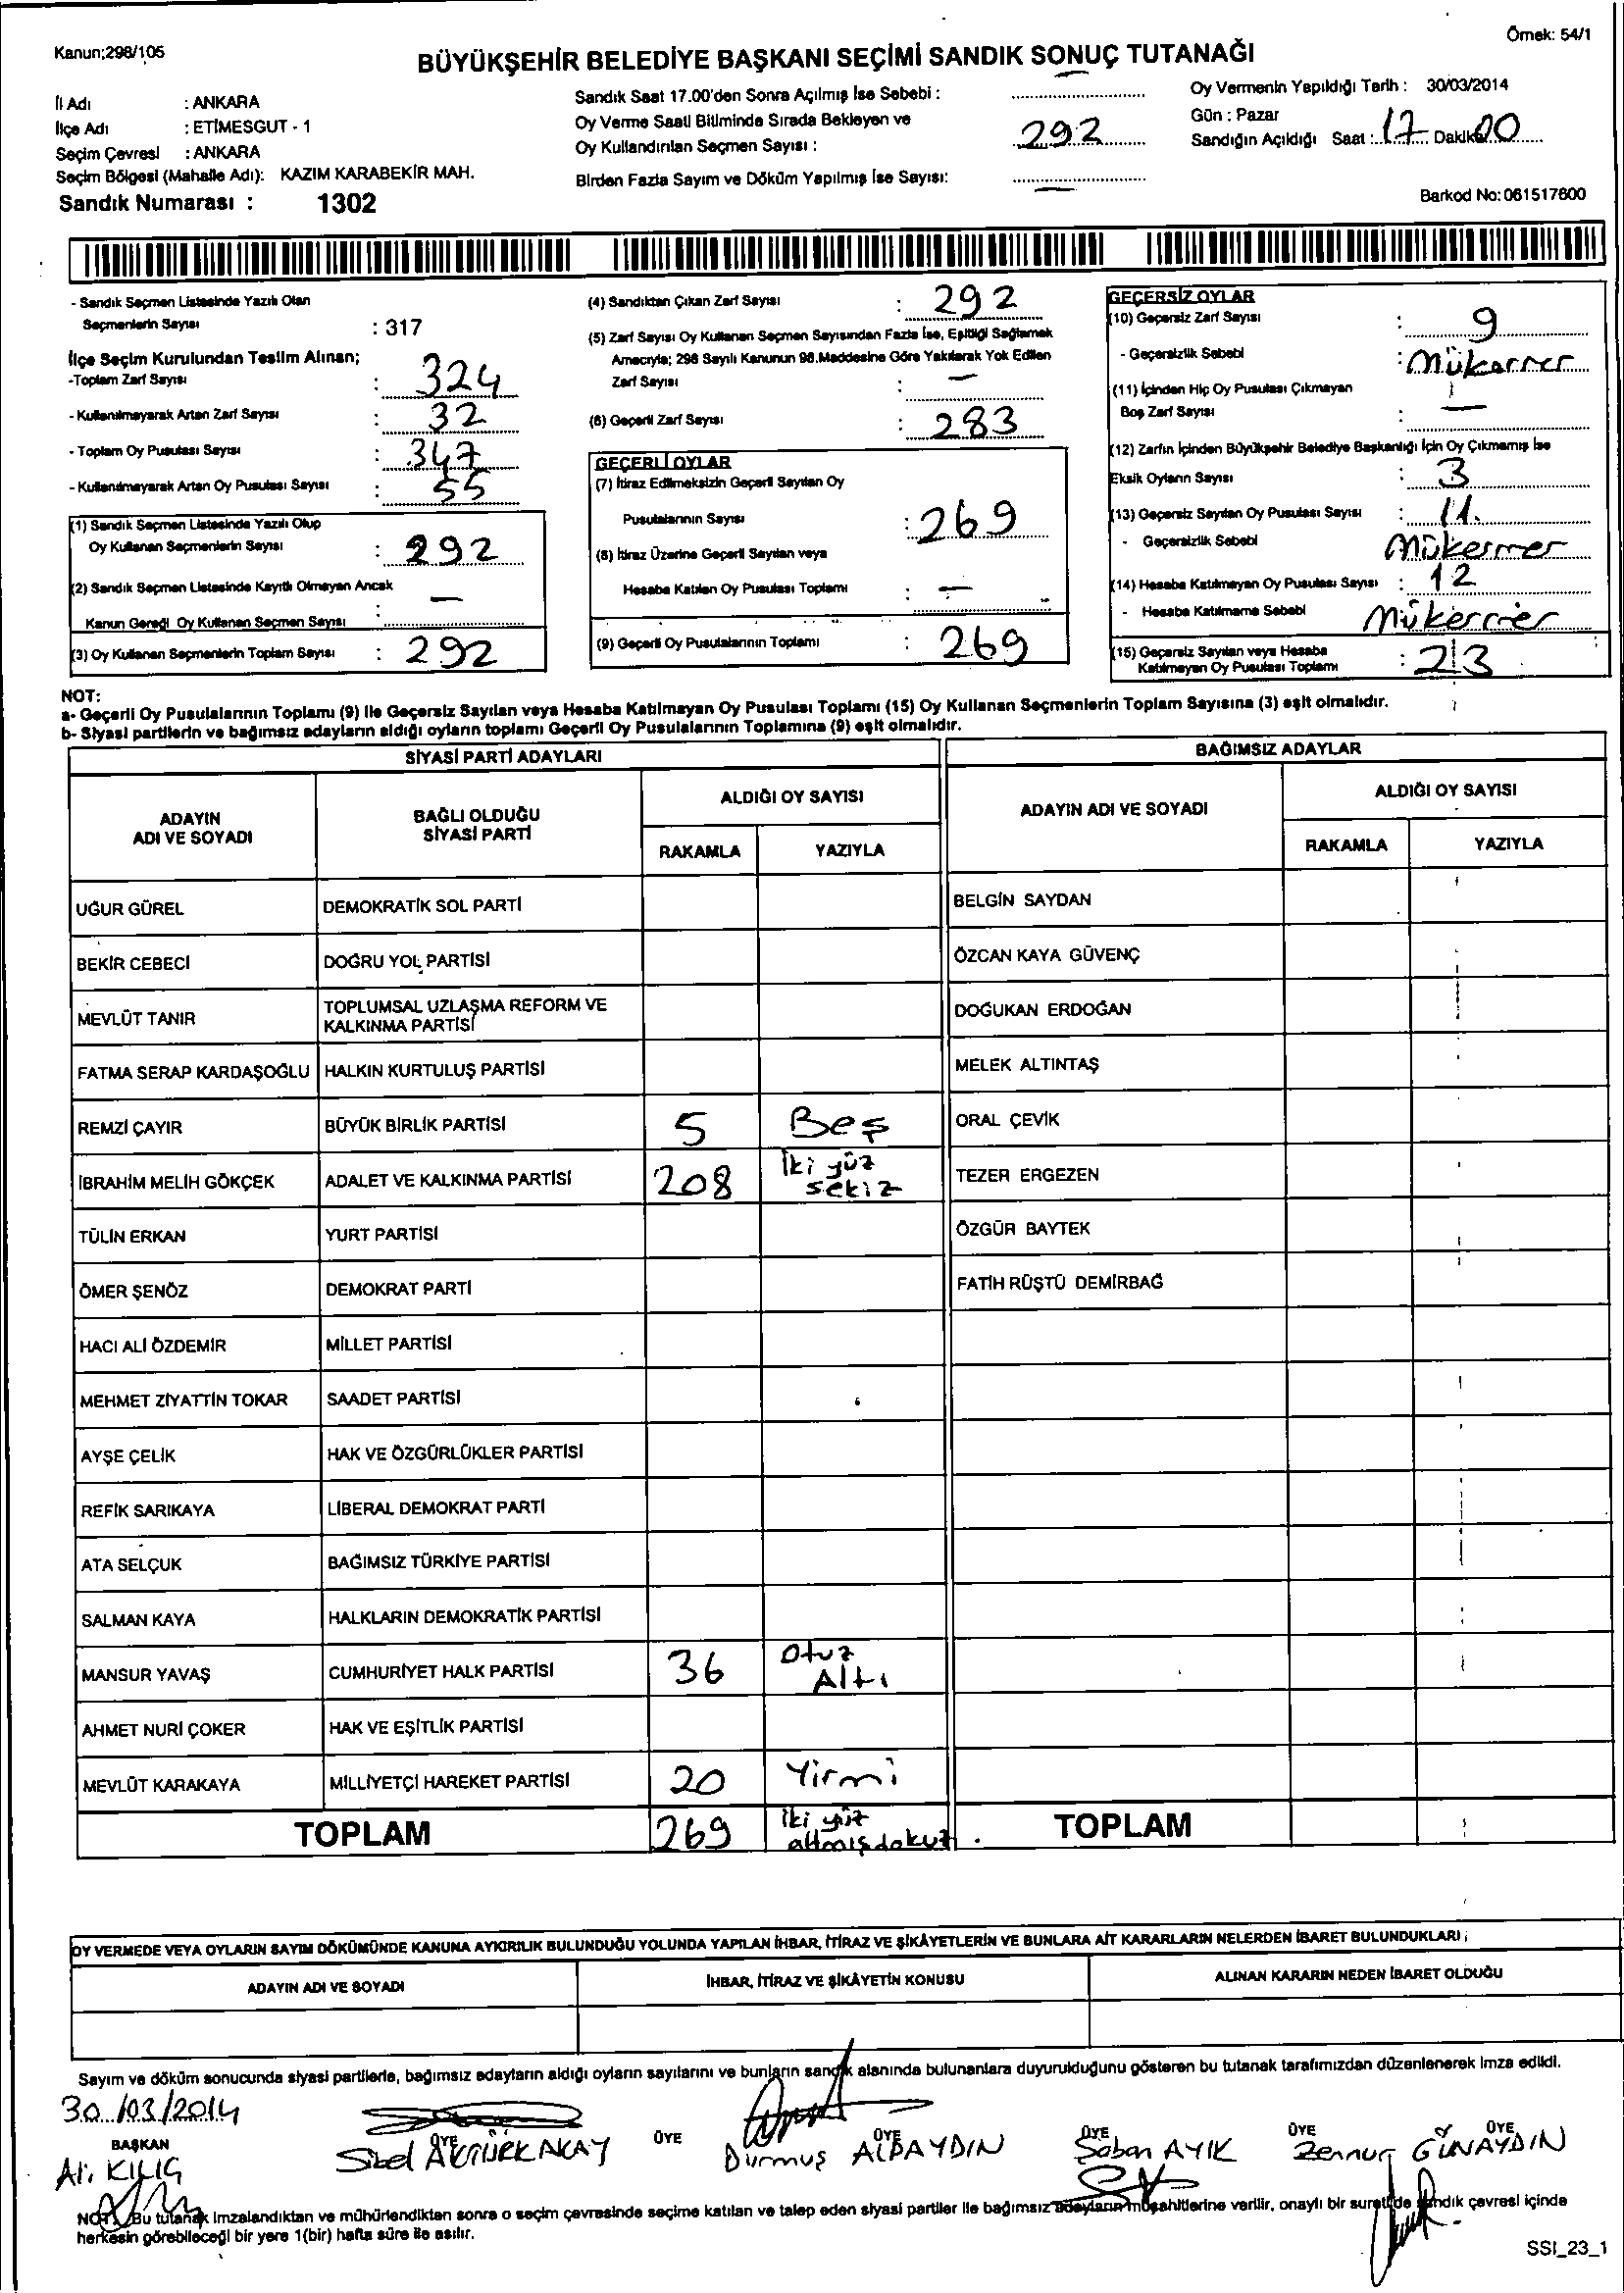 Kanun;298/105
Örnek: 54/1
BÜYÜKŞEHİR BELEDİYE BAŞKANI SEÇİMİ SANDIK SONUÇ TUTANAĞI
İl Adı : ANKARA
İlçe Adı : ETİMESGUT - 1
Seçim Çevresi : ANKARA
Seçim Bölgesi (Mahalle Adı): KAZIM KARABEKİR MAH.
Sandık Numarası : 1302
Sandık Saat 17.00'den Sonra Açılmış İse Sebebi : —
Oy Verme Saati Bitiminde Sırada Bekleyen ve
Oy Kullandırılan Seçmen Sayısı : 292
Birden Fazla Sayım ve Döküm Yapılmış İse Sayısı: —
Oy Vermenin Yapıldığı Tarih : 30/03/2014
Gün : Pazar
Sandığın Açıldığı Saat : 17 Dakika 00
Barkod No: 061517600
- Sandık Seçmen Listesinde Yazılı Olan
Seçmenlerin Sayısı : 317
İlçe Seçim Kurulundan Teslim Alınan;
-Toplam Zarf Sayısı : 324
- Kullanılmayarak Artan Zarf Sayısı : 32
- Toplam Oy Pusulası Sayısı : 347
- Kullanılmayarak Artan Oy Pusulası Sayısı : 55
(1) Sandık Seçmen Listesinde Yazılı Olup
Oy Kullanan Seçmenlerin Sayısı : 292
(2) Sandık Seçmen Listesinde Kayıtlı Olmayan Ancak
Kanun Gereği Oy Kullanan Seçmen Sayısı : —
(3) Oy Kullanan Seçmenlerin Toplam Sayısı : 292
(4) Sandıktan Çıkan Zarf Sayısı : 292
(5) Zarf Sayısı Oy Kullanan Seçmen Sayısından Fazla İse, Eşitliği Sağlamak
Amacıyla; 298 Sayılı Kanunun 98.Maddesine Göre Yakılarak Yok Edilen
Zarf Sayısı : —
(6) Geçerli Zarf Sayısı : 283
GEÇERLİ OYLAR
(7) İtiraz Edilmeksizin Geçerli Sayılan Oy
Pusulalarının Sayısı : 269
(8) İtiraz Üzerine Geçerli Sayılan veya
Hesaba Katılan Oy Pusulası Toplamı : —
(9) Geçerli Oy Pusulalarının Toplamı : 269
GEÇERSİZ OYLAR
(10) Geçersiz Zarf Sayısı : 9
- Geçersizlik Sebebi : Mükerrer
(11) İçinden Hiç Oy Pusulası Çıkmayan
Boş Zarf Sayısı : —
(12) Zarfın İçinden Büyükşehir Belediye Başkanlığı İçin Oy Çıkmamış İse
Eksik Oyların Sayısı : 3
(13) Geçersiz Sayılan Oy Pusulası Sayısı : 11.
- Geçersizlik Sebebi Mükerrer
(14) Hesaba Katılmayan Oy Pusulası Sayısı : 12
- Hesaba Katılmama Sebebi Mükerrer
(15) Geçersiz Sayılan veya Hesaba
Katılmayan Oy Pusulası Toplamı : 23
NOT:
a- Geçerli Oy Pusulalarının Toplamı (9) ile Geçersiz Sayılan veya Hesaba Katılmayan Oy Pusulası Toplamı (15) Oy Kullanan Seçmenlerin Toplam Sayısına (3) eşit olmalıdır.
b- Siyasi partilerin ve bağımsız adayların aldığı oyların toplamı Geçerli Oy Pusulalarının Toplamına (9) eşit olmalıdır.
SİYASİ PARTİ ADAYLARI
BAĞIMSIZ ADAYLAR
ADAYIN ADI VE SOYADI
BAĞLI OLDUĞU SİYASİ PARTİ
ALDIĞI OY SAYISI
RAKAMLA YAZIYLA
ADAYIN ADI VE SOYADI
ALDIĞI OY SAYISI
RAKAMLA YAZIYLA
UĞUR GÜREL DEMOKRATİK SOL PARTİ BELGİN SAYDAN
BEKİR CEBECİ DOĞRU YOL PARTİSİ ÖZCAN KAYA GÜVENÇ
MEVLÜT TANIR TOPLUMSAL UZLAŞMA REFORM VE KALKINMA PARTİSİ DOĞUKAN ERDOĞAN
FATMA SERAP KARDAŞOĞLU HALKIN KURTULUŞ PARTİSİ MELEK ALTINTAŞ
REMZİ ÇAYIR BÜYÜK BİRLİK PARTİSİ 5 Beş ORAL ÇEVİK
İBRAHİM MELİH GÖKÇEK ADALET VE KALKINMA PARTİSİ 208 İki yüz sekiz TEZER ERGEZEN
TÜLİN ERKAN YURT PARTİSİ ÖZGÜR BAYTEK
ÖMER ŞENÖZ DEMOKRAT PARTİ FATİH RÜŞTÜ DEMİRBAĞ
HACI ALİ ÖZDEMİR MİLLET PARTİSİ
MEHMET ZİYATTİN TOKAR SAADET PARTİSİ
AYŞE ÇELİK HAK VE ÖZGÜRLÜKLER PARTİSİ
REFİK SARIKAYA LİBERAL DEMOKRAT PARTİ
ATA SELÇUK BAĞIMSIZ TÜRKİYE PARTİSİ
SALMAN KAYA HALKLARIN DEMOKRATİK PARTİSİ
MANSUR YAVAŞ CUMHURİYET HALK PARTİSİ 36 Otuz Altı
AHMET NURİ ÇOKER HAK VE EŞİTLİK PARTİSİ
MEVLÜT KARAKAYA MİLLİYETÇİ HAREKET PARTİSİ 20 Yirmi
TOPLAM 269 iki yüz altmışdokuz. TOPLAM
OY VERMEDE VEYA OYLARIN SAYIM DÖKÜMÜNDE KANUNA AYKIRILIK BULUNDUĞU YOLUNDA YAPILAN İHBAR, İTİRAZ VE ŞİKÂYETLERİN VE BUNLARA AİT KARARLARIN NELERDEN İBARET BULUNDUKLARI ;
ADAYIN ADI VE SOYADI İHBAR, İTİRAZ VE ŞİKÂYETİN KONUSU ALINAN KARARIN NEDEN İBARET OLDUĞU
Sayım ve döküm sonucunda siyasi partilerle, bağımsız adayların aldığı oyların sayılarını ve bunların sandık alanında bulunanlara duyurulduğunu gösteren bu tutanak tarafımızdan düzenlenerek imza edildi.
30/03/2014
BAŞKAN ÜYE ÜYE ÜYE ÜYE ÜYE ÜYE
Ali KILIÇ Sibel AKTÜRK AKAY Durmuş ALPAYDIN Şaban AYIK Zennur GÜNAYDIN
NOT: Bu tutanak imzalandıktan ve mühürlendikten sonra o seçim çevresinde seçime katılan ve talep eden siyasi partiler ile bağımsız adayların müşahitlerine verilir, onaylı bir suretide sandık çevresi içinde
herkesin görebileceği bir yere 1(bir) hafta süre ile asılır.
SSI_23_1